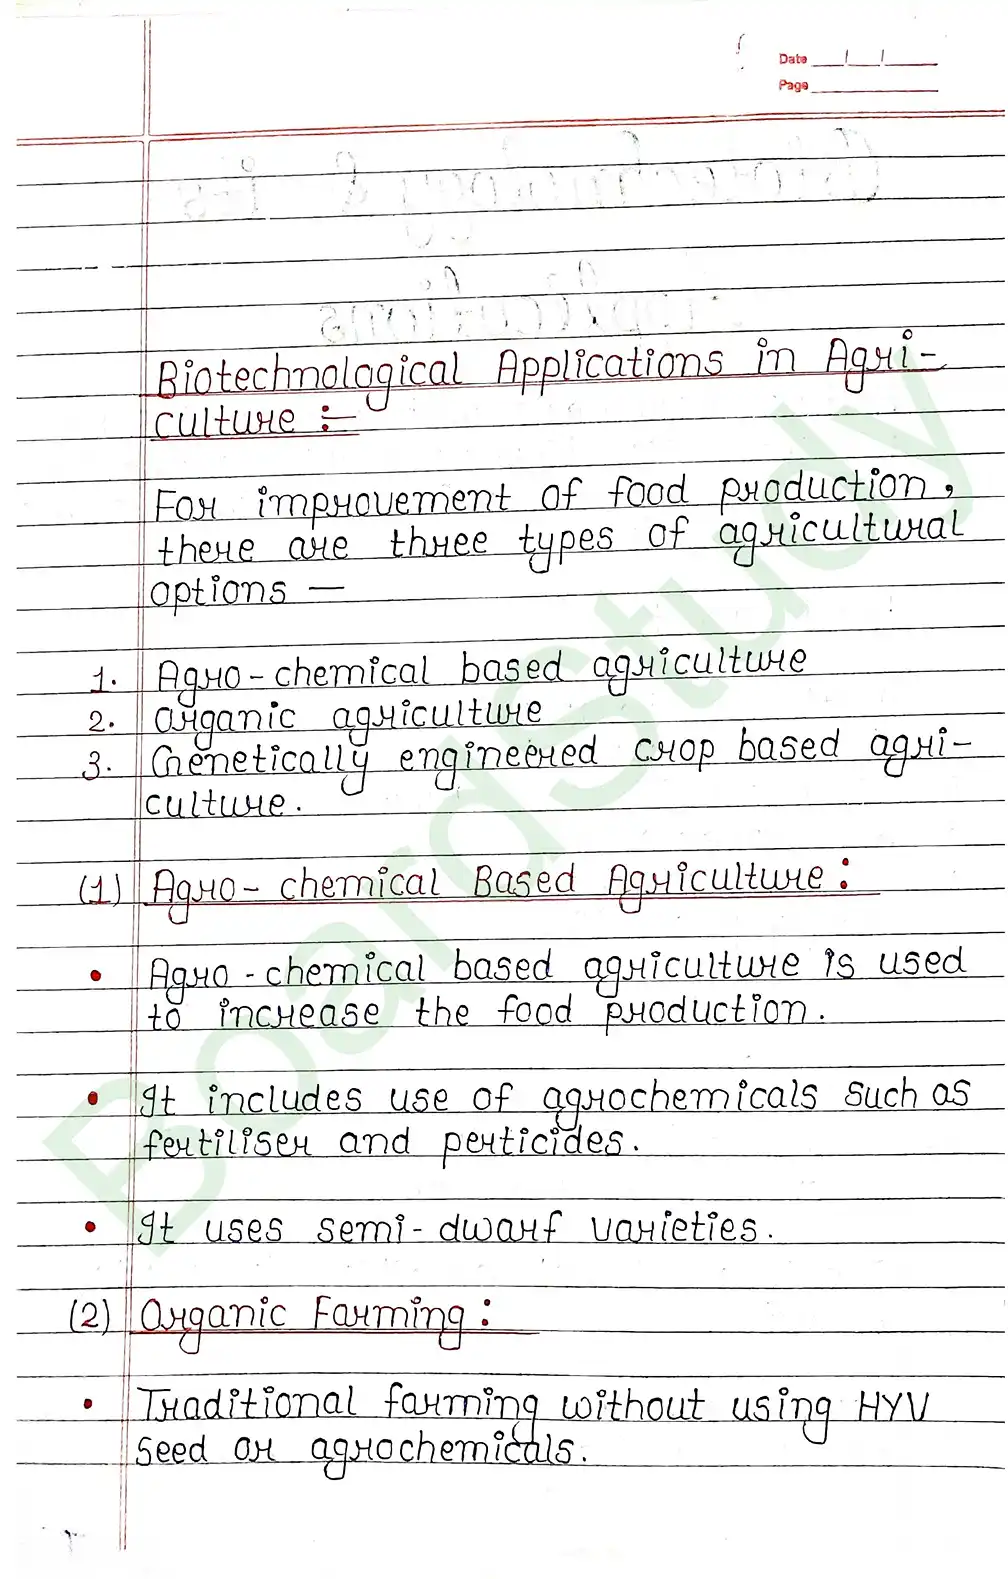 Date __/__/____
Page ________
Biotechnological Applications in Agri-
culture :-
For improvement of food production,
there are three types of agricultural
options —
1. Agro-chemical based agriculture
2. Organic agriculture
3. Genetically engineered crop based agri-
culture.
(1) Agro-chemical Based Agriculture :
• Agro-chemical based agriculture is used
to increase the food production.
• It includes use of agrochemicals such as
fertiliser and perticides.
• It uses semi-dwarf varieties.
(2) Organic Farming :
• Traditional farming without using HYV
seed or agrochemicals.
BoardStudy